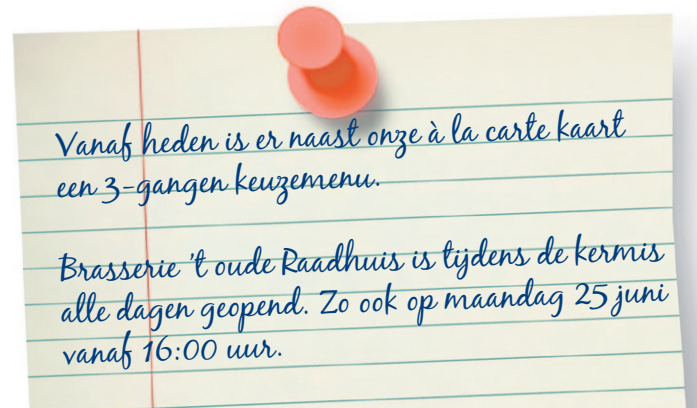 Vanaf heden is er naast onze à la carte kaart
een 3-gangen keuzemenu.
Brasserie 't oude Raadhuis is tijdens de kermis
alle dagen geopend. Zo ook op maandag 25 juni
vanaf 16:00 uur.